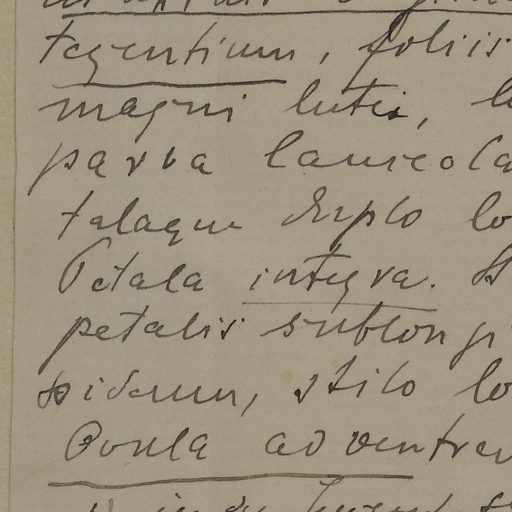 tegentium, foliis
magni lutei, l
parva lanceola
talaque duplo lo
Petala integra. S
petalis sublongi
pidum, stilo lo
Ovula ad ventrem